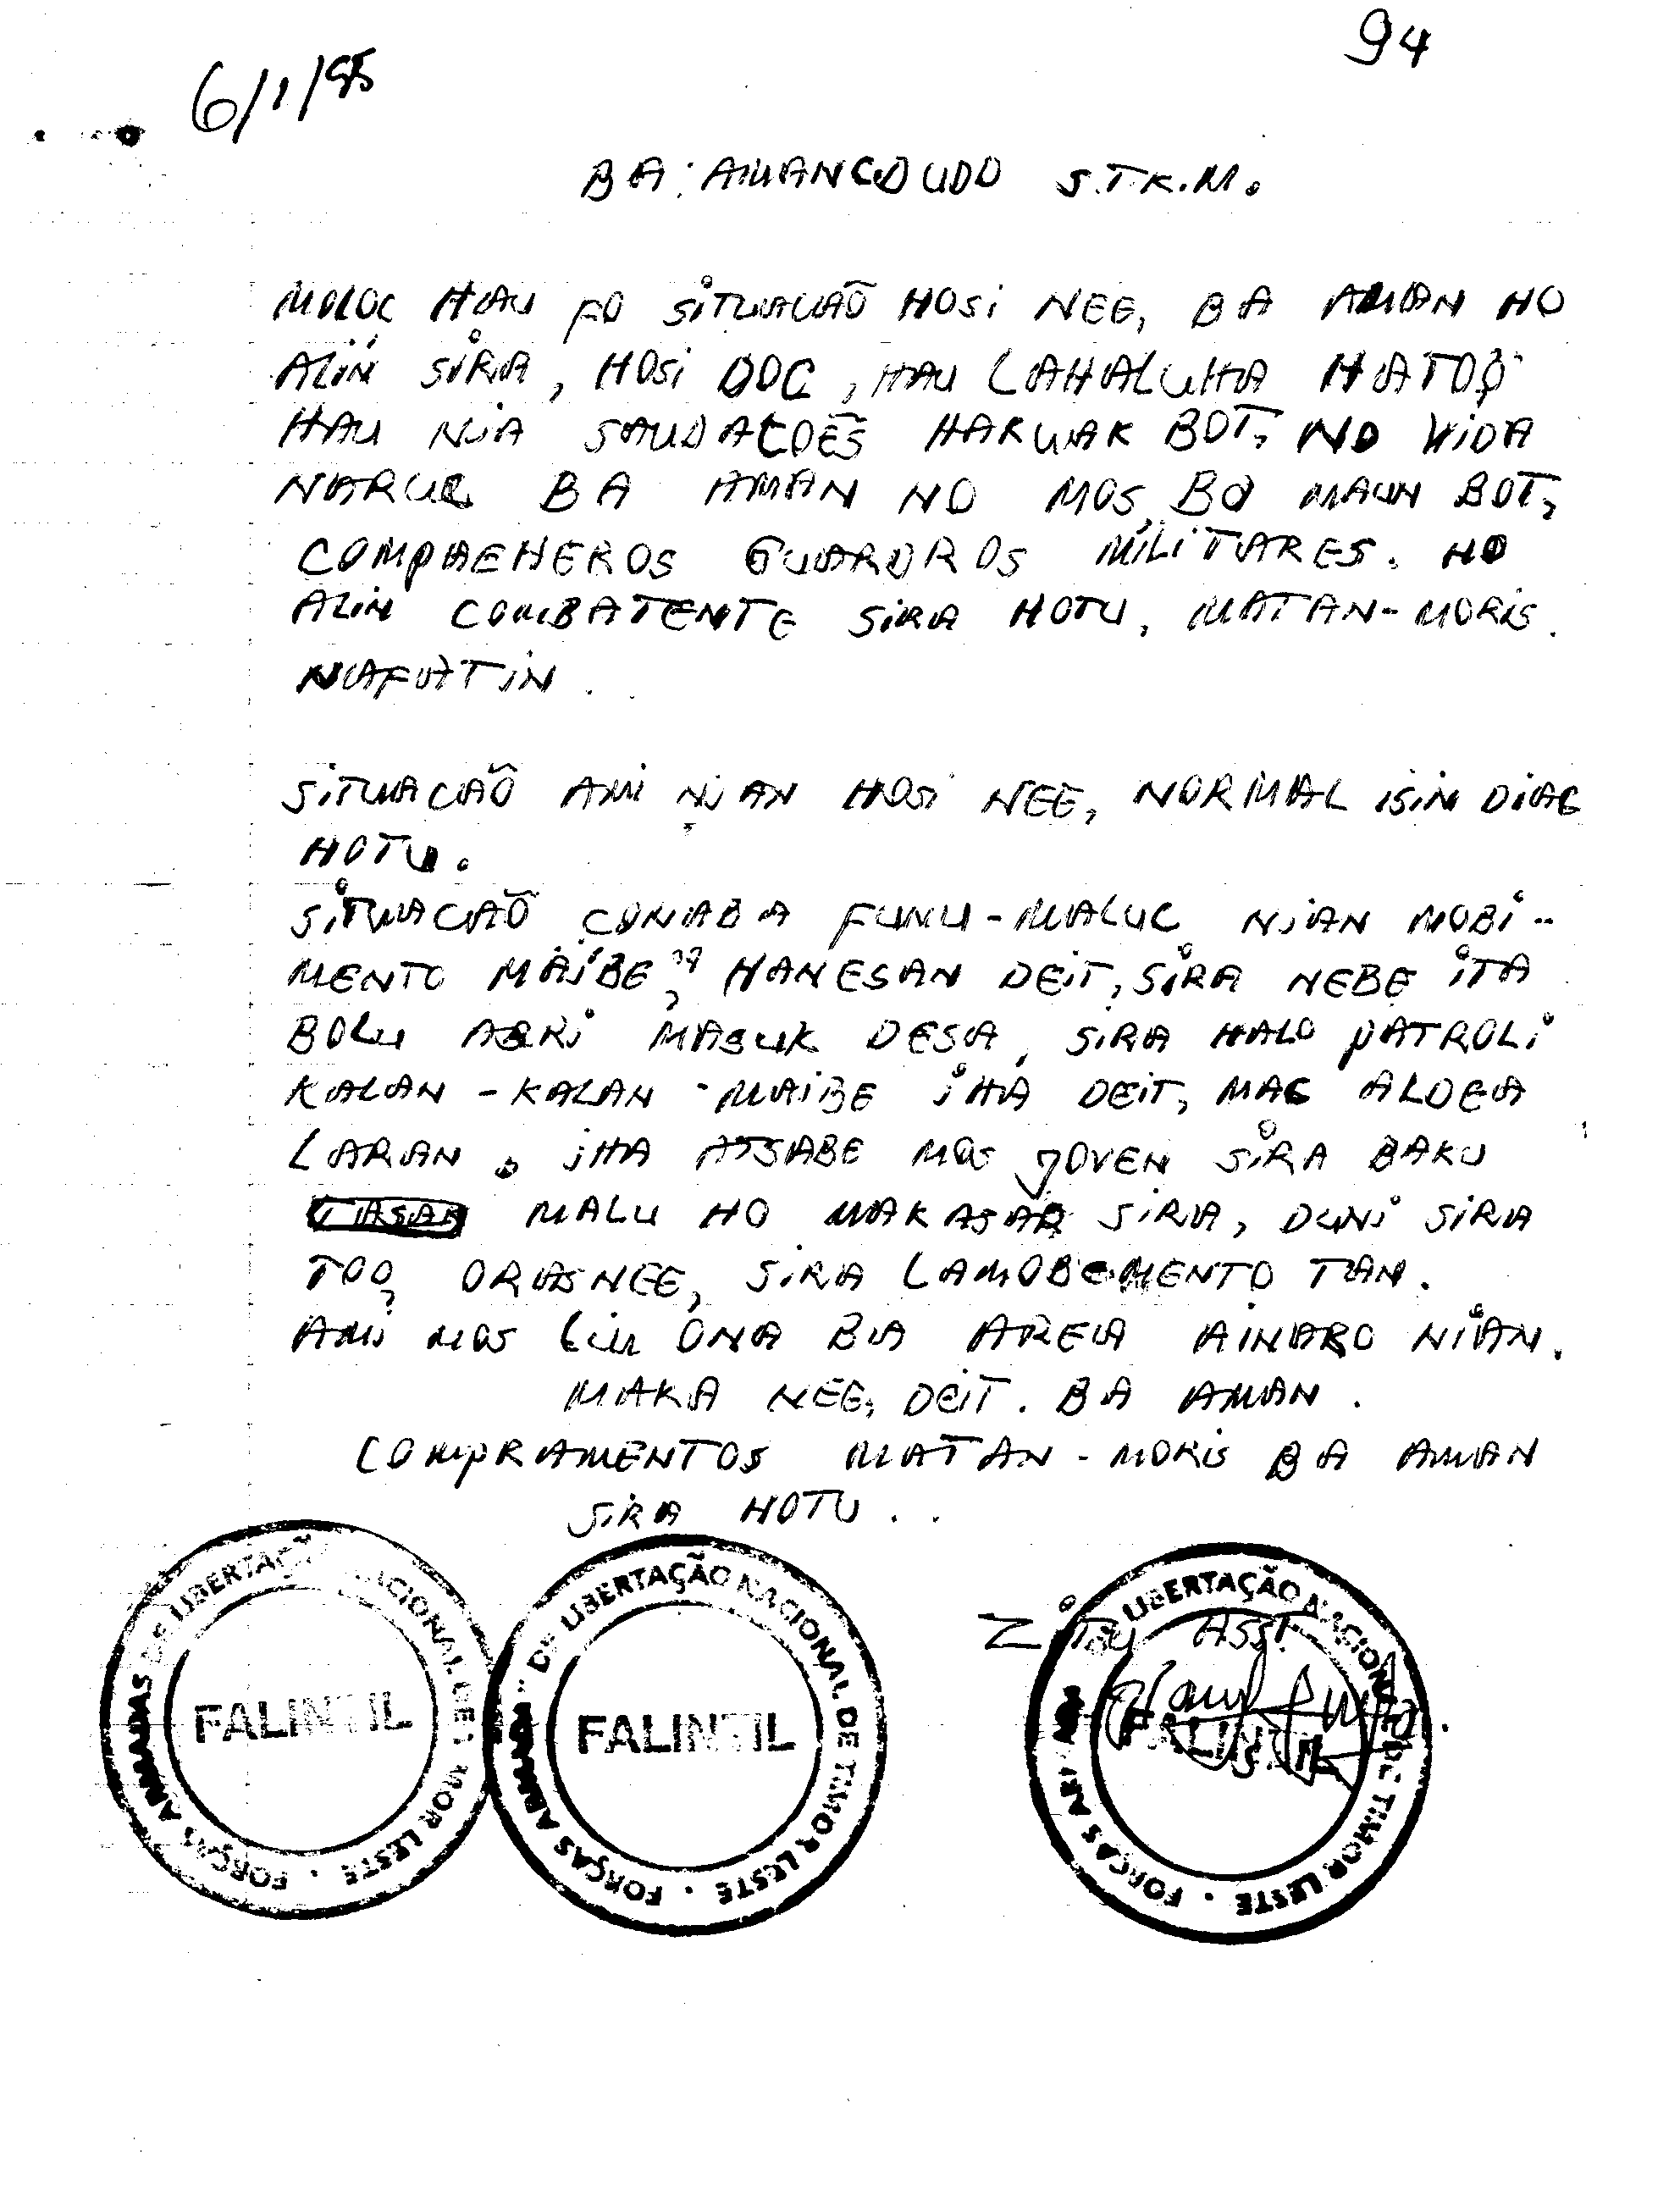 94
6/1/95
BA: AMANCDUDO S.T.K.M.
MOLOC HAU FO SITUACÃO HOSI NEE, BA AMAN HO
ALIN SIRA, HOSI DOC, HAU LAHALUHA HATOO
HAU NIA SAUDACOẼS HAKUAK BOT, NO VIDA
NARUC BA AMAN NO MOS BA MAUN BOT,
COMPAEHEROS GUARDROS MILITARES. HO
ALIN COMBATENTE SIRA HOTU, MATAN-MORIS.
NAFATIN.
SITUACÃO AMI NIAN HOSI NEE, NORMAL ISIN DIAC
HOTU.
SITUACÃO CONABA FUNU-MALUC NIAN MOBI-
MENTO MAIBE, HANESAN DEIT, SIRA NEBE ITA
BOLU ABRI MASUK DESA, SIRA HALO PATROLI
KALAN-KALAN MAIBE IHA DEIT, MAC ALDEA
LARAN. IHA ATSABE MOS JOVEN SIRA BAKU
MALU HO MAKASAR SIRA, DUNI SIRA
TOO ORASNEE, SIRA LAMOBEMENTO TAN.
AMI MOS LIU ONA BA AREA AINARO NIAN.
MAKA NEE, DEIT. BA AMAN.
COMPRAMENTOS MATAN-MORIS BA AMAN
SIRA HOTU..
FORÇAS ARMADAS DE LIBERTAÇÃO NACIONAL DE TIMOR LESTE
FALINTIL
FORÇAS ARMADAS DE LIBERTAÇÃO NACIONAL DE TIMOR LESTE
FALINTIL
FORÇAS ARMADAS DE LIBERTAÇÃO NACIONAL DE TIMOR LESTE
FALINTIL
Asst